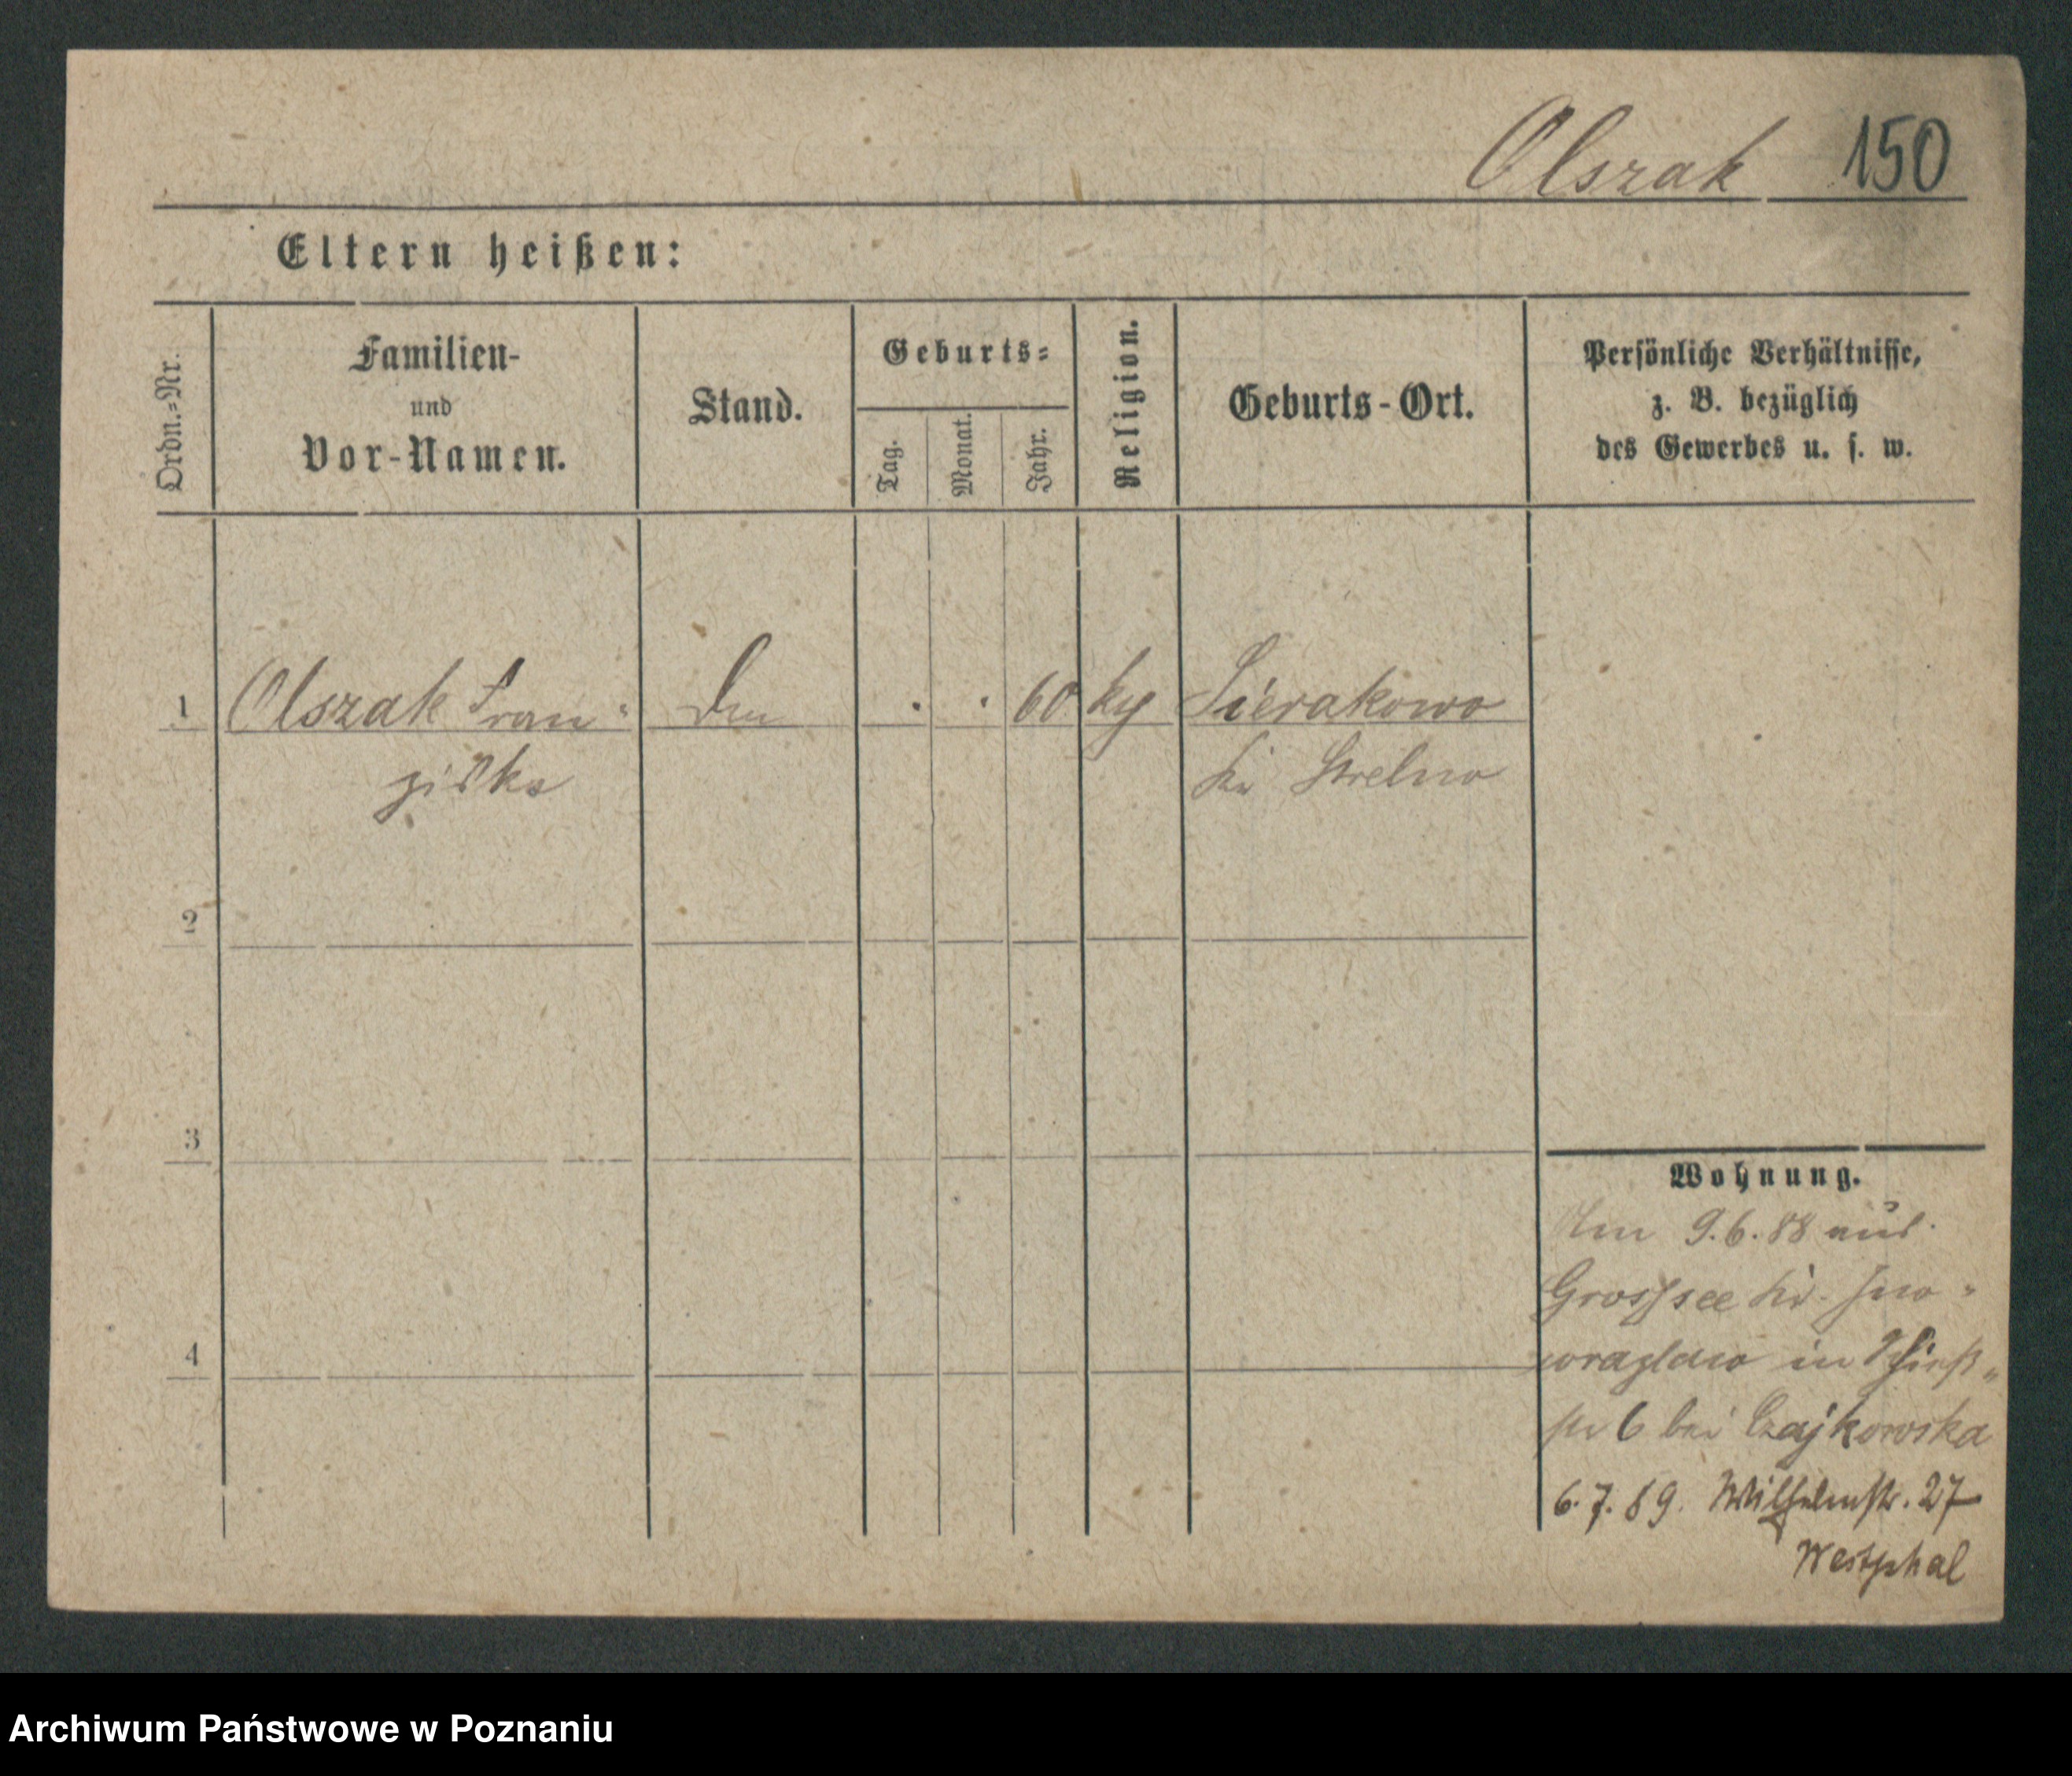 Olszak 150
Eltern heißen:
Ordn.-Nr.
Familien-
und
Vor-Namen.
Stand.
Geburts-
Tag.
Monat.
Jahr.
Religion.
Geburts-Ort.
Persönliche Verhältnisse,
z. B. bezüglich
des Gewerbes u. s. w.
1 Olszak Fran- . . 60 kg Sierakowo
ziska Kr Strelno
2
3
4
Wohnung.
Am 9.6.88 aus
Grosssee Kr. Ino-
wrazlaw in Schieß-
str 6 bei Czajkowska
6.7.89. Wilhelmstr. 27
Westphal
Archiwum Państwowe w Poznaniu